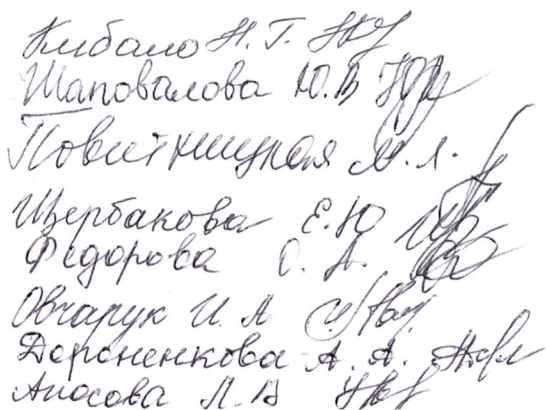 Кибало Н. Г.
Шаповалова Ю. В
Повитницкая М. Л.
Щербакова Е. Ю
Федорова О. А.
Овчарук И. А
Дороненкова А. А.
Апасова Л. В